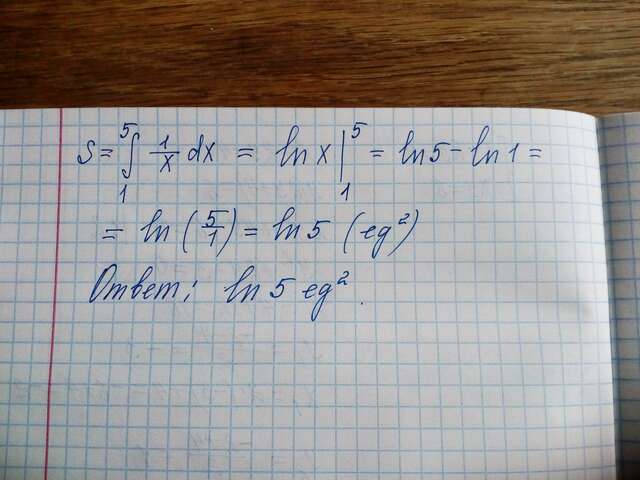 S = ∫₁⁵ 1/x dx = ln x |₁⁵ = ln5 - ln1 =
= ln (5/1) = ln 5 (ед²)
Ответ: ln 5 ед².